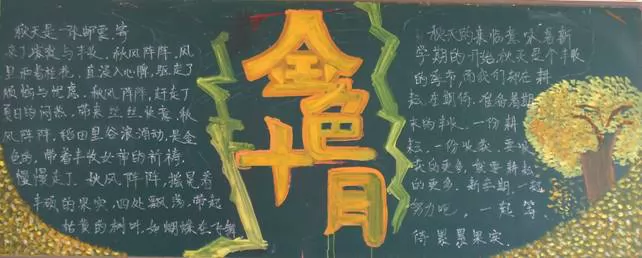 秋天是一张邮票，寄
来了凉爽与丰收。秋风阵阵，风
里和着桂花，直浸入心脾，驱走了
烦恼与忧愁。秋风阵阵，赶走了
夏日的闷热，带来丝丝凉意，秋
风阵阵，稻田里谷浪涌动，是金
色的，带着丰收女神的祈祷，
慢慢走了。秋风阵阵，摇晃着
丰硕的果实，四处飘荡，带起
枯黄的树叶，如蝴蝶在飞舞
金色十月
秋天的来临意味着新
学期的开始，秋天是个丰收
的季节，而我们却在耕
耘，在期待，准备着期
末的丰收。一份耕
耘，一份收获。要收
获的更多，就要耕耘
的更多。新学期，一起
努力吧，一起等
待累累果实。